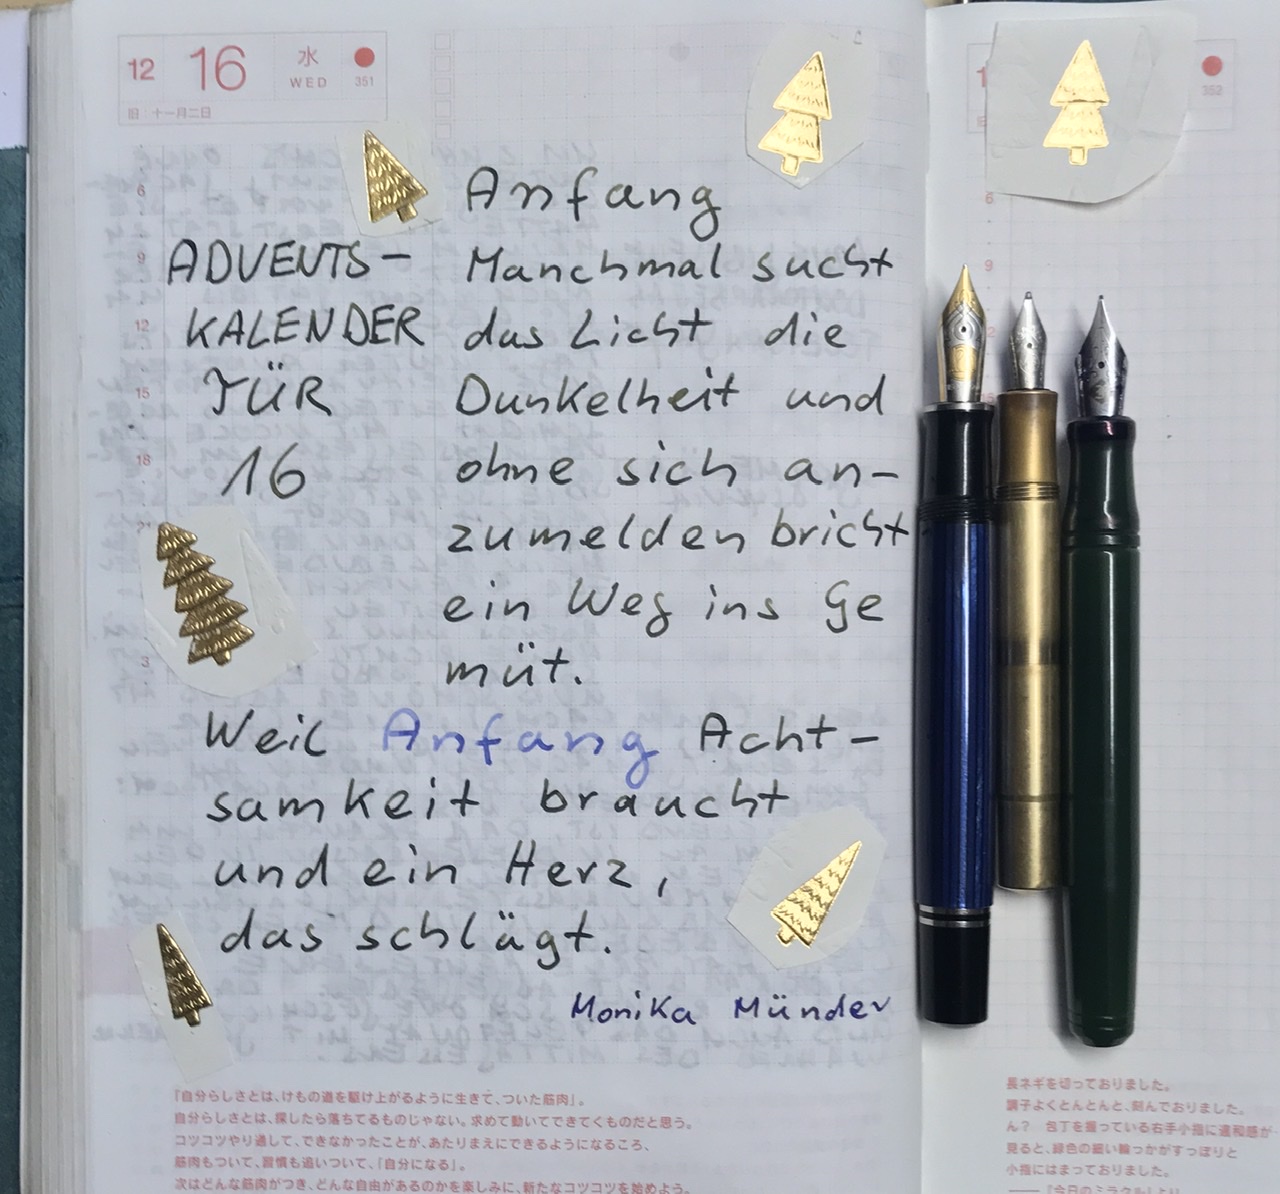 12 16 水 WED 351
旧:十一月二日
352
Anfang
ADVENTS-
KALENDER
TÜR
16
Manchmal sucht
das Licht die
Dunkelheit und
ohne sich an-
zumelden bricht
ein Weg ins Ge
müt.
Weil Anfang Acht-
samkeit braucht
und ein Herz,
das schlägt.
Monika Münder
6
9
12
15
18
21
3
6
9
「自分らしさとは、けもの道を駆け上がるように生きて、ついた筋肉」。
自分らしさとは、探したら落ちてるものじゃない。求めて動いてできてくものだと思う。
コツコツやり通して、できなかったことが、あたりまえにできるようになるころ、
筋肉もついて、習慣も追いついて、「自分になる」。
次はどんな筋肉がつき、どんな自由があるのかを楽しみに、新たなコツコツを始めよう。
長ネギを切っておりました。
調子よくとんとんと、刻んでおりました。
ん? 包丁を握っている右手小指に違和感が
見ると、緑色の細い輪っかがすっぽりと
小指にはまっておりました。
——『今日のミラクル!』より